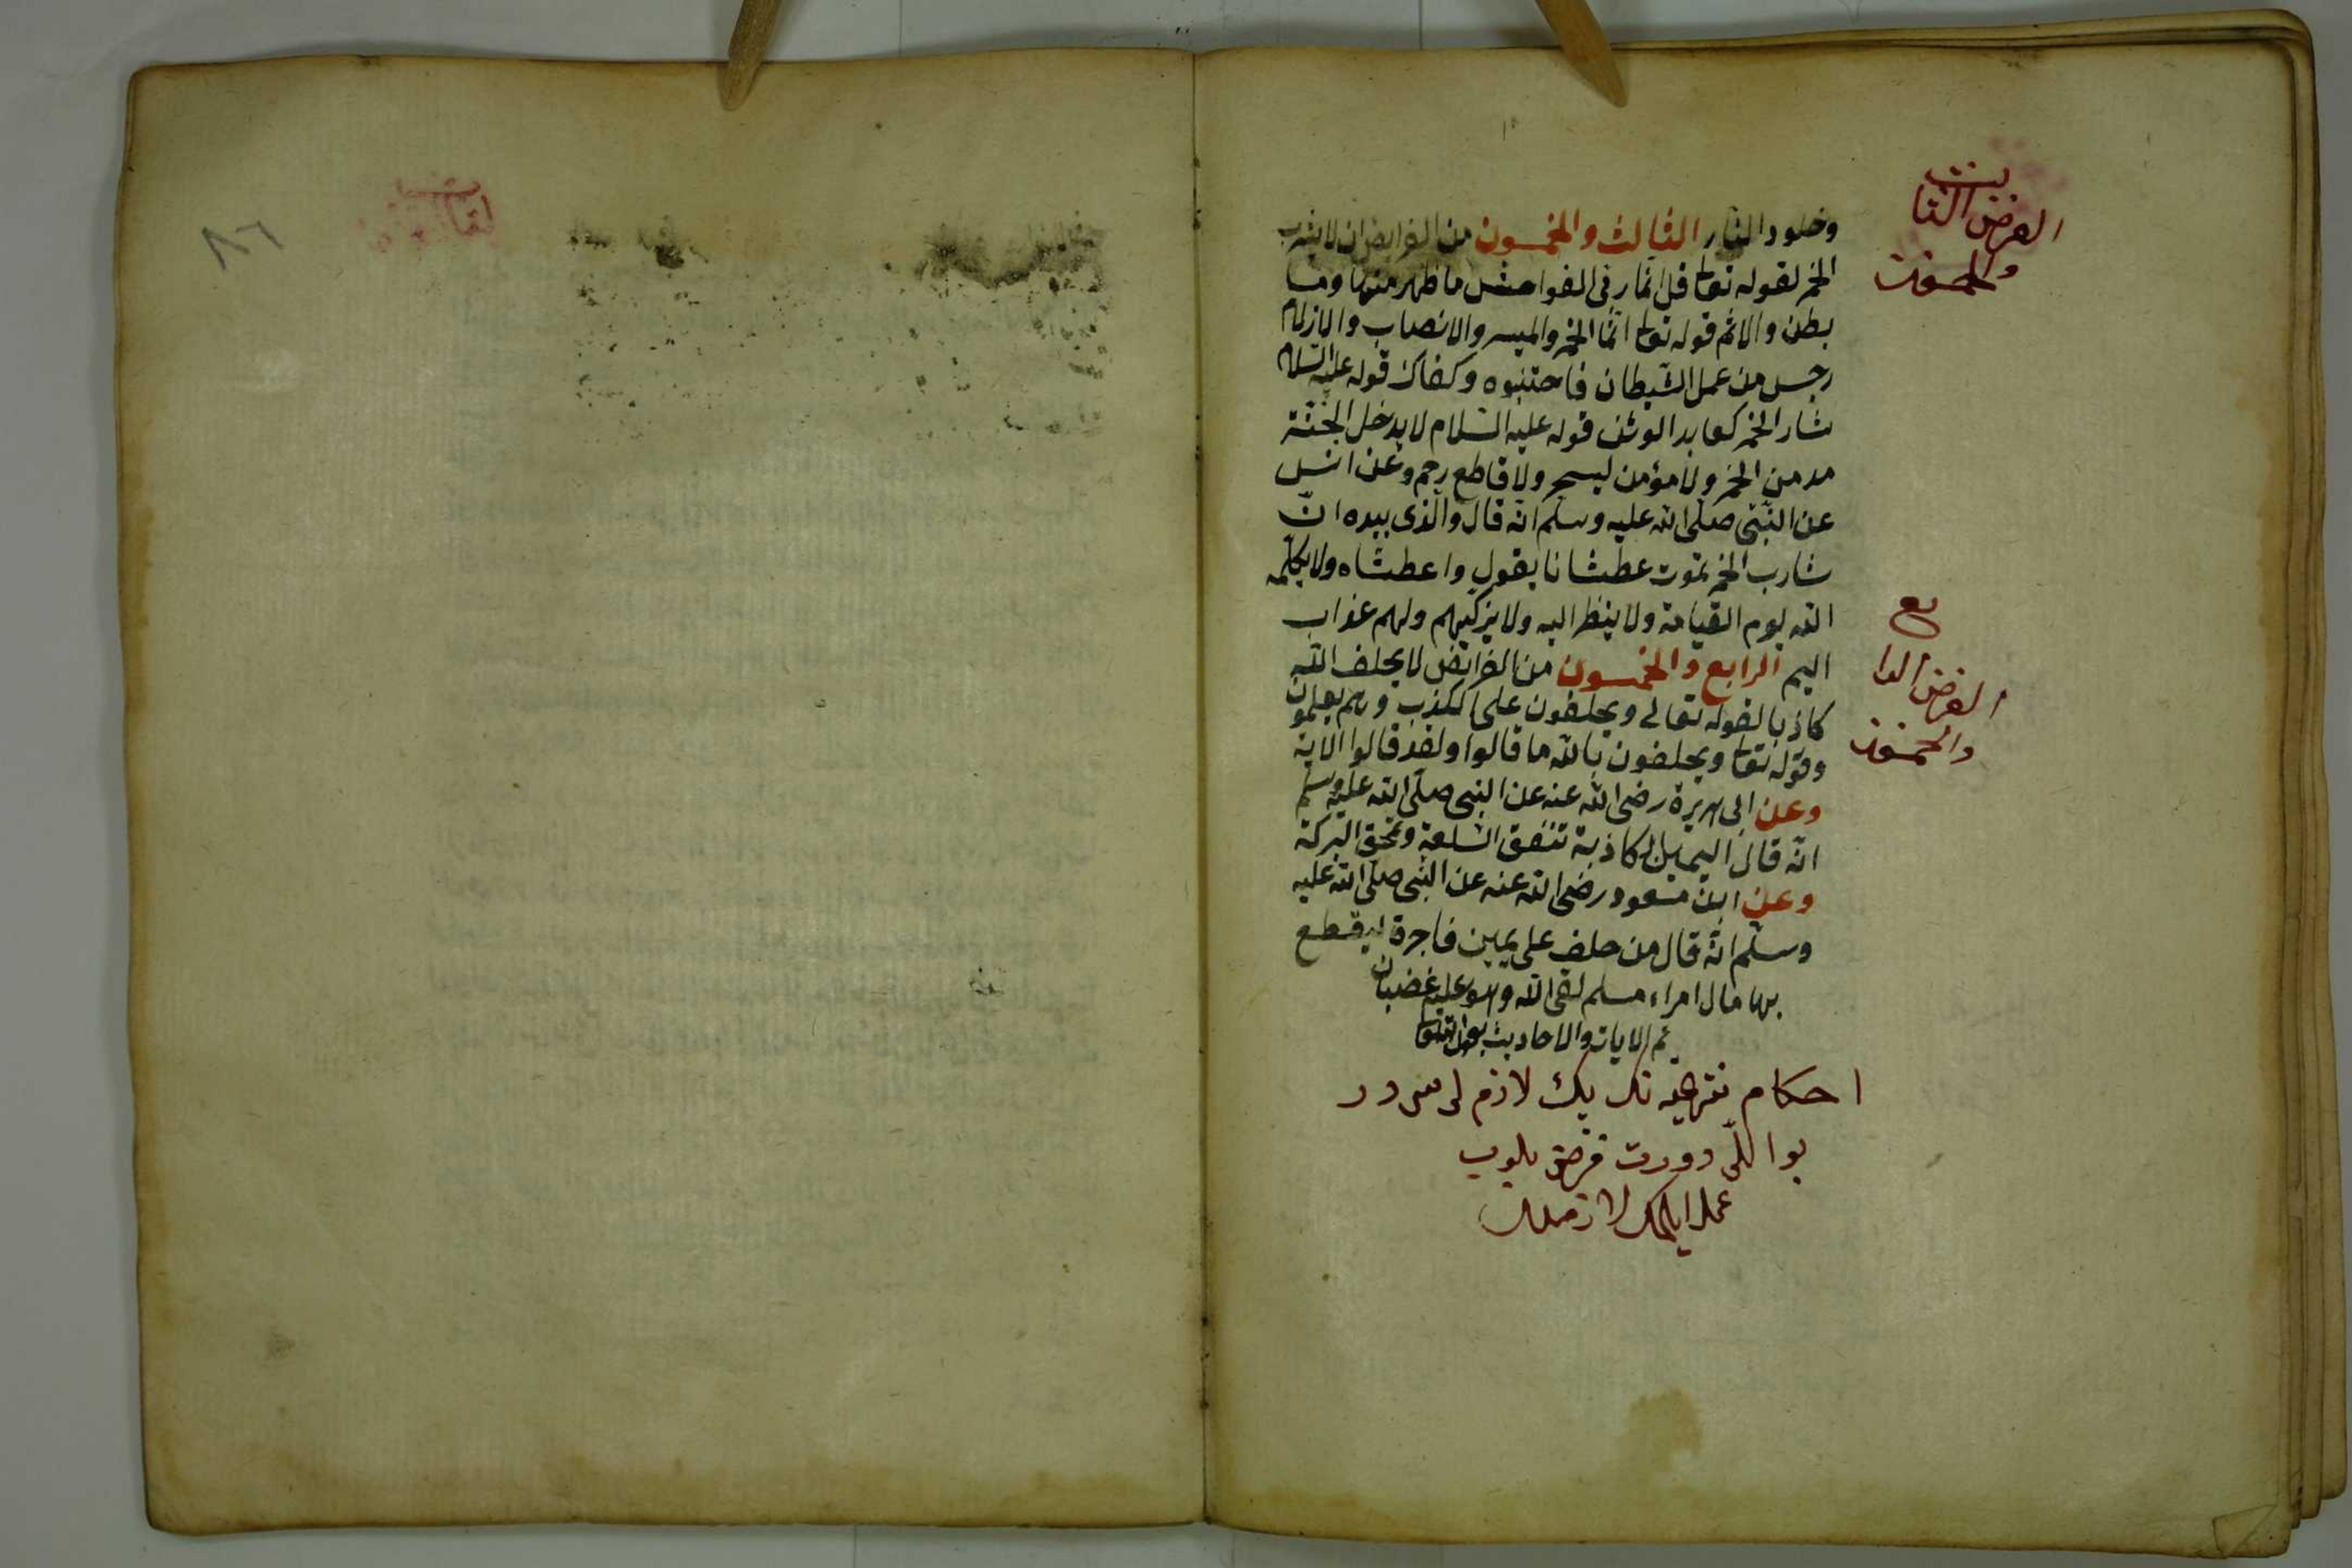 وخلود النار الثالث والخمسون من الفرايض ان لا يشرب
الخمر لقوله تعا قل انما ربى الفواحش ما ظهر منها وما
بطن والاثم قوله تعا انما الخمر والميسر والانصاب والازلام
رجس من عمل الشيطان فاجتنبوه وكفاك قوله عليه السلام
شارب الخمر كعابد الوثن قوله عليه السلام لا يدخل الجنة
مدمن الخمر ولا مؤمن ليسحر ولا قاطع رحم وعن انس
عن النبى صلى الله عليه وسلم انه قال والذى بيده ان
شارب الخمر يموت عطشانا يقول واعطشاه ولا يكلمه
الله يوم القيامة ولا ينظر اليه ولا يزكيهم ولهم عذاب
اليم الرابع والخمسون من الفرائض لا يحلف الله
كاذبا لقوله تعالى ويحلفون على الكذب وهم يعلمون
وقوله تعا ويحلفون بالله ما قالوا ولقد قالوا الاية
وعن ابى هريرة رضى الله عنه عن النبى صلى الله عليه وسلم
انه قال اليمين الكاذبة تنفق السلعة وتمحق البركة
وعن ابن مسعود رضى الله عنه عن النبى صلى الله عليه
وسلم انه قال من حلف على يمين فاجرة ليقطع
بها مال امراء مسلم لقى الله وهو عليه غضبان
تم الايات والاحاديث بعون الله تعا
احكام لازم
بو اللى دورت فرض بلوب
عمل ايلمك لازمدر
الفرض الثالث
والخمسون
الفرض الرابع
والخمسون
٨٦